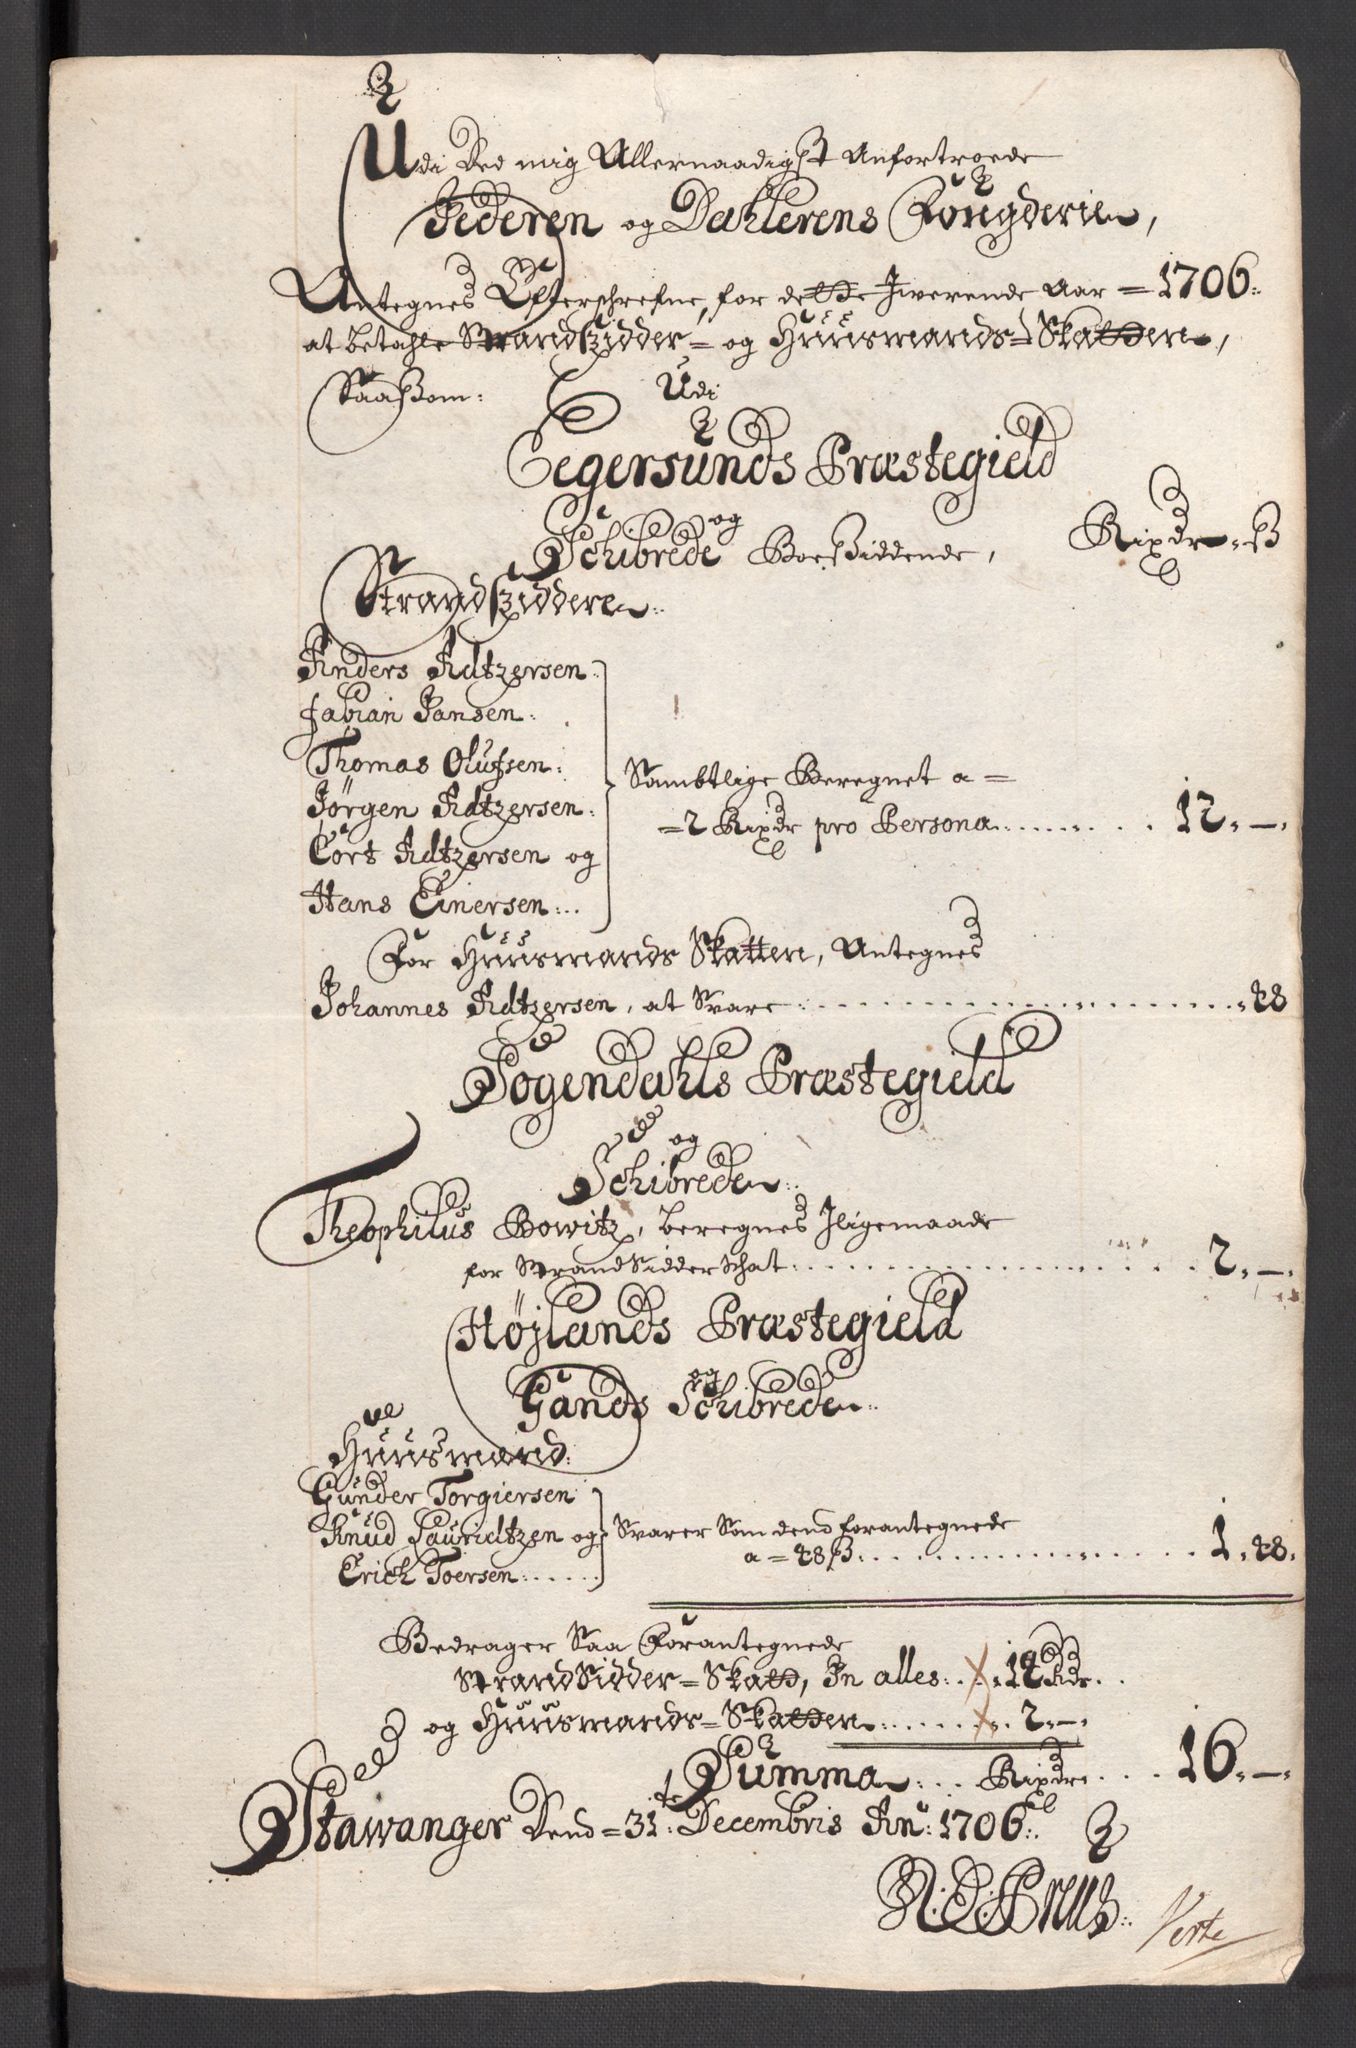 Udi Ded mig Allernaadigst Anfortroede
Jederen og Dahlerens Fougderie,
Antegnes Efterschrefne, for dette Jwerende Aar = 1706:
at betahle Strandsidder= og Huusmands=Skatten,
Saasom: Udi
Eegersunds Præstegield
og
Schibrede Boesiddende, Rixdr. ß
Strandsiddere:
Anders Adtzersen:
Fabian Jansen:
Thomas Olufsen:
Jörgen Adtzersen:
Cort Adtzersen og
Hans Einersen:..
Sambtlige Beregnet a =
=2 Rixdr pro Persona........ 12. —.
For Huusmands Skatten, Antegnes
Johannes Adtzersen, at Svare:................ 48
Sogendahls Præstegield
og
Schibrede:
Theophilus Bowitz, beregnes Jligemaade
for StrandSidder Schat:............ 2. —.
Höjlands Præstegield
og
Gands Schibrede:
Huusmænd:
Gunder Torgiersen
Knud Lauridtzen og
Erich Toersen:.....
Svarer Som dend forantegnede
a = 48 ß:............ 1. 48.
Bedrager Saa Forantegnede
StrandSidder=Skatt, In alles:... 14 Rdr..
og Huusmands=Skatten:....... 2. —.
Summa:... Rixdr.... 16. —.
Stawanger Dend = 31: Decembris An: 1706:.
Verte